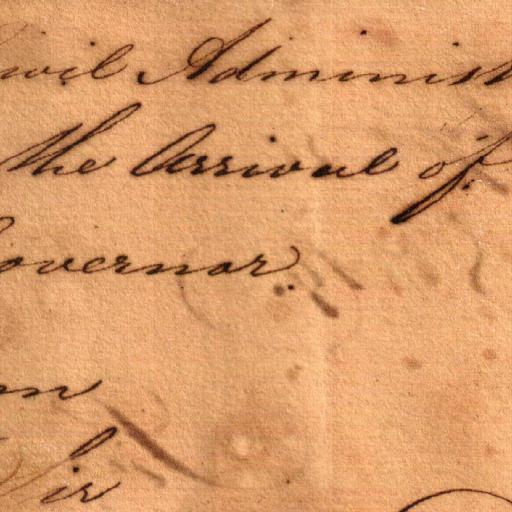 ivil Administ
the Arrival of
overnor.
Sir